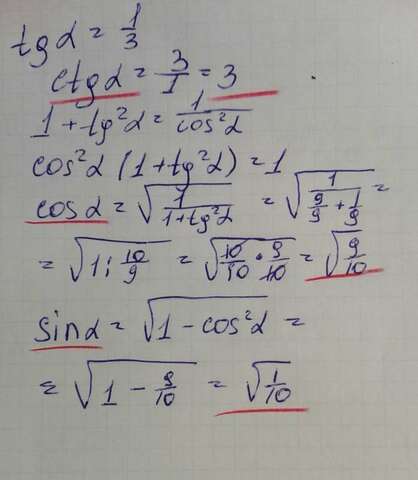 tgα = 1/3
ctgα = 3/1 = 3
1 + tg²α = 1/cos²α
cos²α (1 + tg²α) = 1
cosα = √(1/(1+tg²α)) = √(1/(9/9 + 1/9)) =
= √(1 : 10/9) = √(10/10 · 9/10) = √(9/10)
sinα = √(1 - cos²α) =
= √(1 - 9/10) = √(1/10)